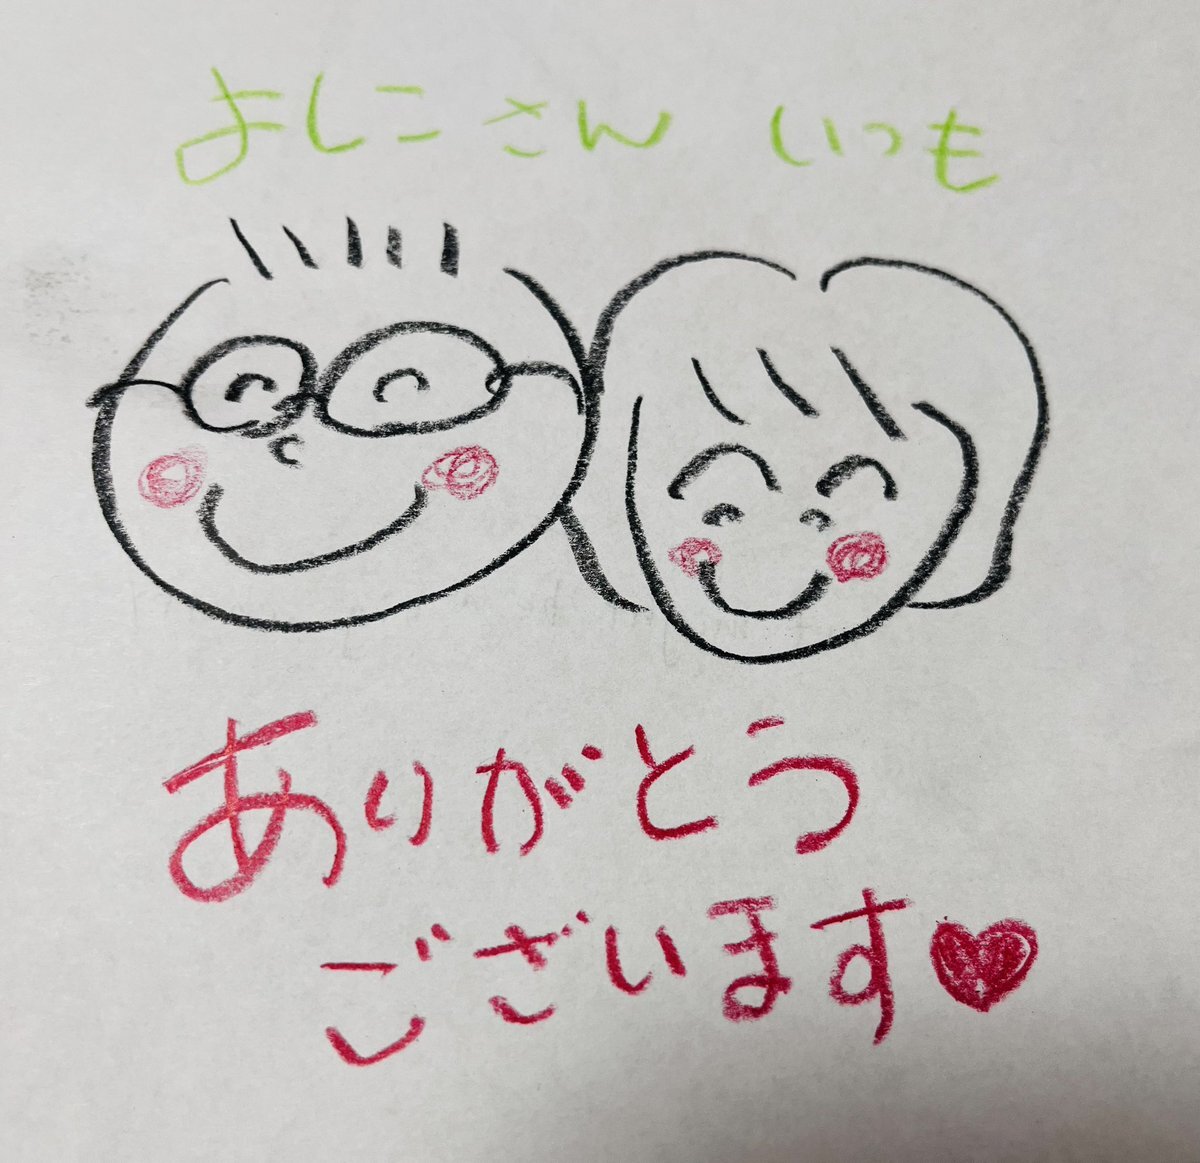 よしこさん いつも
ありがとう
ございます♥